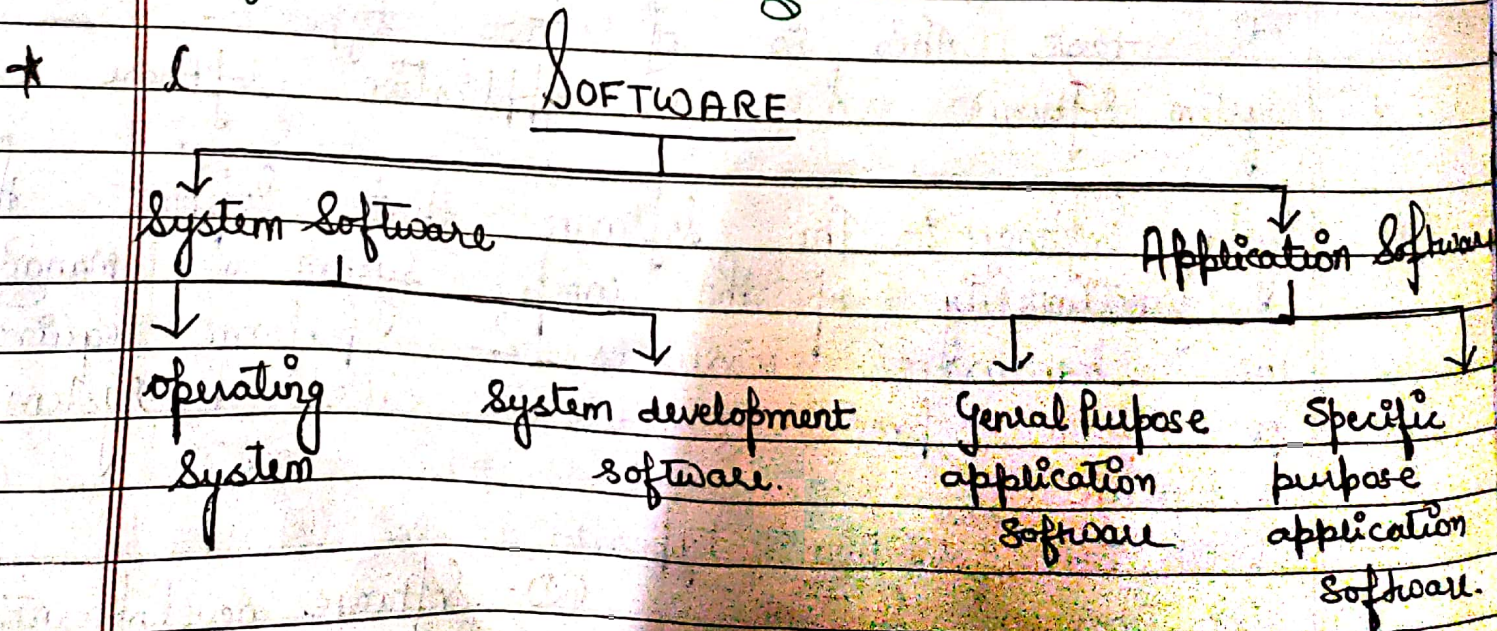 * l
SOFTWARE
System Software
Application Software
operating
system
System development
software.
Genral Purpose
application
software
Specific
purpose
application
software.